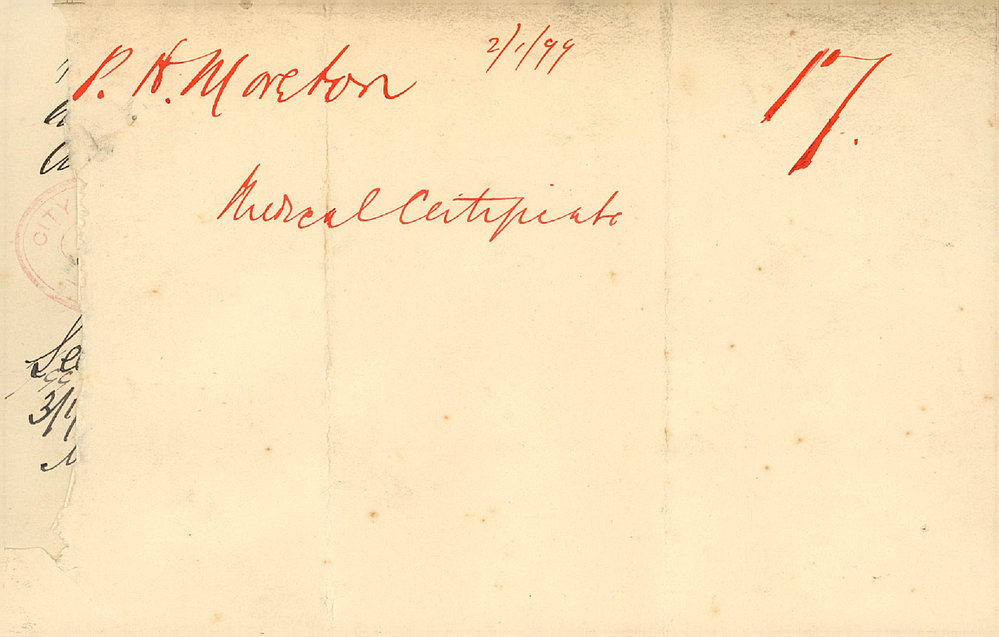 P. H. Moreton 2/1/99 17.
Medical Certificate
CITY
Se
3/1